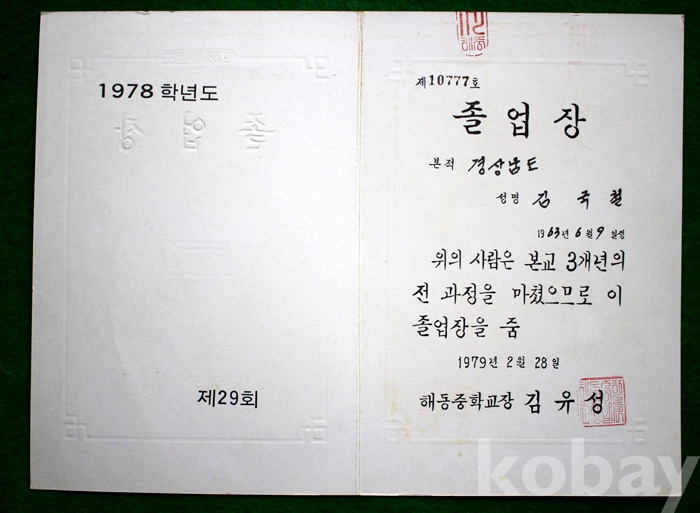 1978 학년도
제29회
제10777호
졸업장
본적 경상남도
성명 김국철
1963년 6월 9일생
위의 사람은 본교 3개년의
전 과정을 마쳤으므로 이
졸업장을 줌
1979년 2월 28일
해동중학교장 김유성
kobay